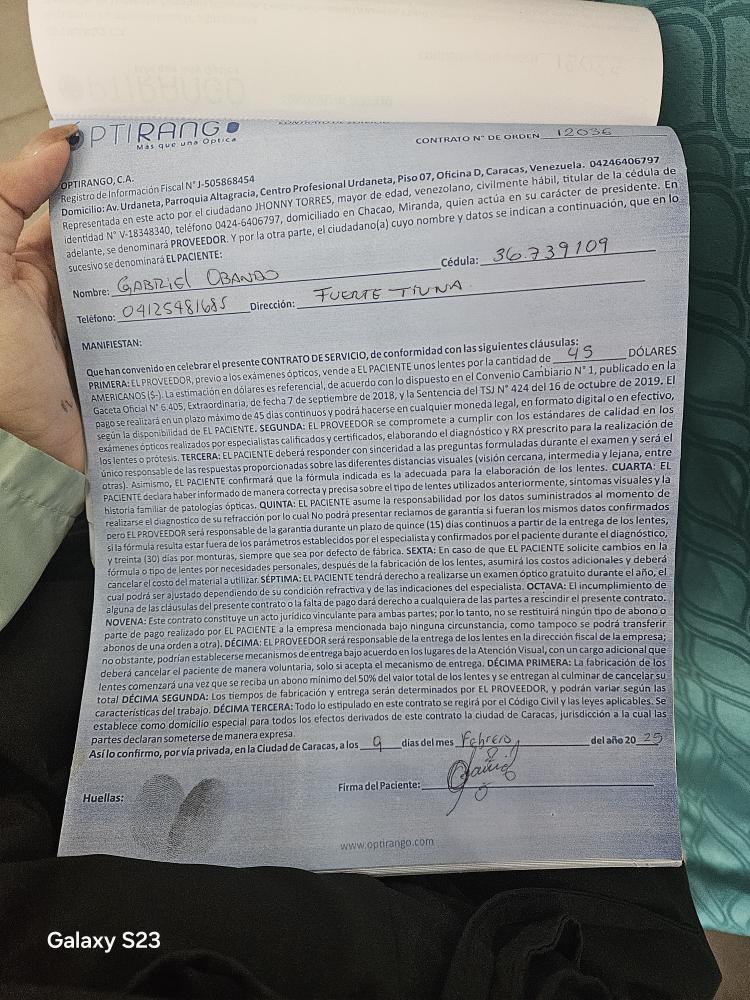 OPTIRANGO
Más que una Óptica
CONTRATO N° DE ORDEN 12036
OPTIRANGO, C.A.
Registro de Información Fiscal N° J-505868454
Domicilio: Av. Urdaneta, Parroquia Altagracia, Centro Profesional Urdaneta, Piso 07, Oficina D, Caracas, Venezuela. 04246406797
Representada en este acto por el ciudadano JHONNY TORRES, mayor de edad, venezolano, civilmente hábil, titular de la cédula de
identidad N° V-18348340, teléfono 0424-6406797, domiciliado en Chacao, Miranda, quien actúa en su carácter de presidente. En
adelante, se denominará PROVEEDOR. Y por la otra parte, el ciudadano(a) cuyo nombre y datos se indican a continuación, que en lo
sucesivo se denominará EL PACIENTE:
Nombre: GABRIEL OBANDO Cédula: 36.739109
Teléfono: 04125481685 Dirección: FUERTE TIUNA
MANIFIESTAN:
Que han convenido en celebrar el presente CONTRATO DE SERVICIO, de conformidad con las siguientes cláusulas:
PRIMERA: EL PROVEEDOR, previo a los exámenes ópticos, vende a EL PACIENTE unos lentes por la cantidad de 45 DÓLARES
AMERICANOS ($-). La estimación en dólares es referencial, de acuerdo con lo dispuesto en el Convenio Cambiario N° 1, publicado en la
Gaceta Oficial N° 6.405, Extraordinaria, de fecha 7 de septiembre de 2018, y la Sentencia del TSJ N° 424 del 16 de octubre de 2019. El
pago se realizará en un plazo máximo de 45 días continuos y podrá hacerse en cualquier moneda legal, en formato digital o en efectivo,
según la disponibilidad de EL PACIENTE. SEGUNDA: EL PROVEEDOR se compromete a cumplir con los estándares de calidad en los
exámenes ópticos realizados por especialistas calificados y certificados, elaborando el diagnóstico y RX prescrito para la realización de
los lentes o prótesis. TERCERA: EL PACIENTE deberá responder con sinceridad a las preguntas formuladas durante el examen y será el
único responsable de las respuestas proporcionadas sobre las diferentes distancias visuales (visión cercana, intermedia y lejana, entre
otras). Asimismo, EL PACIENTE confirmará que la fórmula indicada es la adecuada para la elaboración de los lentes. CUARTA: EL
PACIENTE declara haber informado de manera correcta y precisa sobre el tipo de lentes utilizados anteriormente, síntomas visuales y la
historia familiar de patologías ópticas. QUINTA: EL PACIENTE asume la responsabilidad por los datos suministrados al momento de
realizarse el diagnostico de su refracción por lo cual No podrá presentar reclamos de garantía si fueran los mismos datos confirmados
pero EL PROVEEDOR será responsable de la garantía durante un plazo de quince (15) días continuos a partir de la entrega de los lentes,
si la fórmula resulta estar fuera de los parámetros establecidos por el especialista y confirmados por el paciente durante el diagnóstico,
y treinta (30) días por monturas, siempre que sea por defecto de fábrica. SEXTA: En caso de que EL PACIENTE solicite cambios en la
fórmula o tipo de lentes por necesidades personales, después de la fabricación de los lentes, asumirá los costos adicionales y deberá
cancelar el costo del material a utilizar. SÉPTIMA: EL PACIENTE tendrá derecho a realizarse un examen óptico gratuito durante el año, el
cual podrá ser ajustado dependiendo de su condición refractiva y de las indicaciones del especialista. OCTAVA: El incumplimiento de
alguna de las cláusulas del presente contrato o la falta de pago dará derecho a cualquiera de las partes a rescindir el presente contrato.
NOVENA: Este contrato constituye un acto jurídico vinculante para ambas partes; por lo tanto, no se restituirá ningún tipo de abono o
parte de pago realizado por EL PACIENTE a la empresa mencionada bajo ninguna circunstancia, como tampoco se podrá transferir
abonos de una orden a otra). DÉCIMA: EL PROVEEDOR será responsable de la entrega de los lentes en la dirección fiscal de la empresa;
no obstante, podrían establecerse mecanismos de entrega bajo acuerdo en los lugares de la Atención Visual, con un cargo adicional que
deberá cancelar el paciente de manera voluntaria, solo si acepta el mecanismo de entrega. DÉCIMA PRIMERA: La fabricación de los
lentes comenzará una vez que se reciba un abono mínimo del 50% del valor total de los lentes y se entregan al culminar de cancelar su
total DÉCIMA SEGUNDA: Los tiempos de fabricación y entrega serán determinados por EL PROVEEDOR, y podrán variar según las
características del trabajo. DÉCIMA TERCERA: Todo lo estipulado en este contrato se regirá por el Código Civil y las leyes aplicables. Se
establece como domicilio especial para todos los efectos derivados de este contrato la ciudad de Caracas, jurisdicción a la cual las
partes declaran someterse de manera expresa.
Así lo confirmo, por vía privada, en la Ciudad de Caracas, a los 9 días del mes Febrero del año 20 25
Huellas:
Firma del Paciente:
www.optirango.com
Galaxy S23